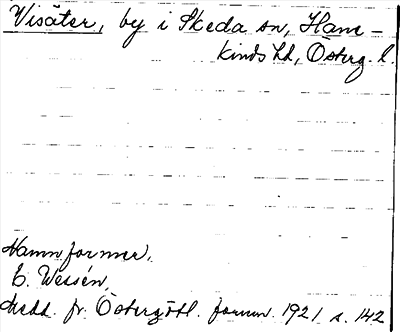 Visäter, by i Skeda sn, Hane-
kinds hd, Österg. l.
Namnformer,
E. Wessén,
Medd. fr. Östergötl. fornm. 1921 s. 142